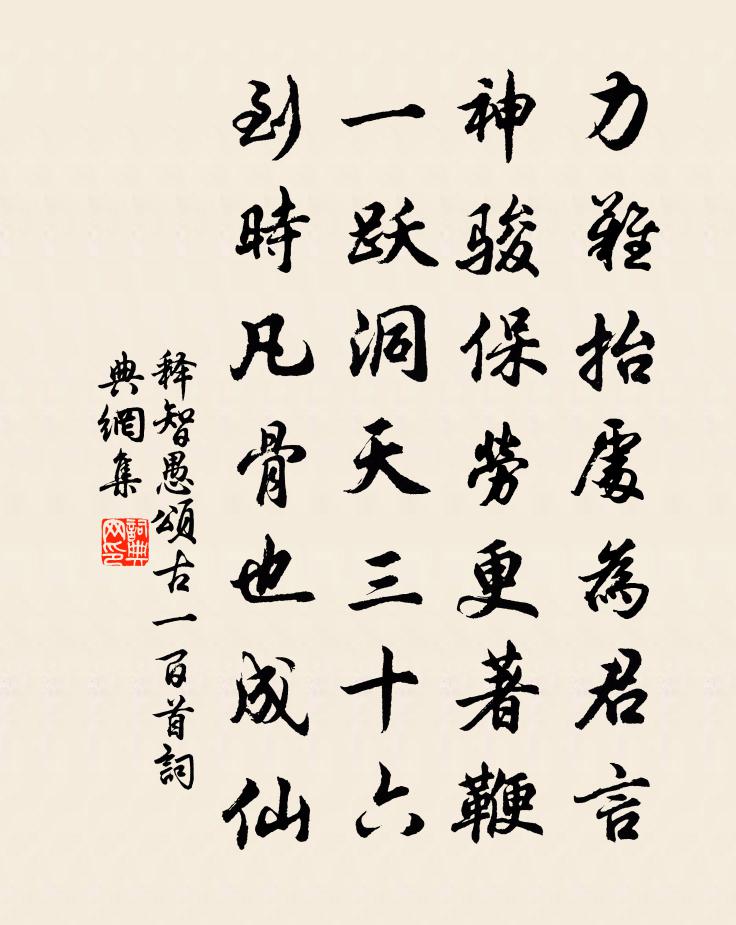 力難抬處為君言
神骏保勞更著鞭
一跃洞天三十六
到時凡骨也成仙
释智愚頌古一百首詞
典網集
詞典网印